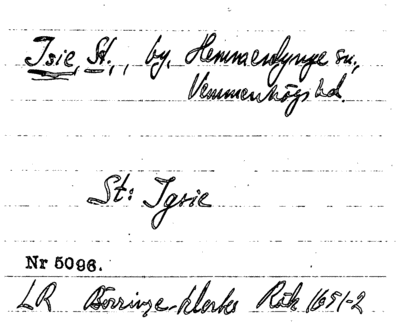 Isie, St., by, Hemmendynge sn.,
Vemmenhögs hd.
St: Igsie
Nr 5096.
LR Börringe-kloster Räk 1651-2